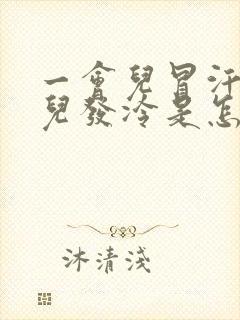 一會兒冒汗
兒發冷是怎
沐清淺